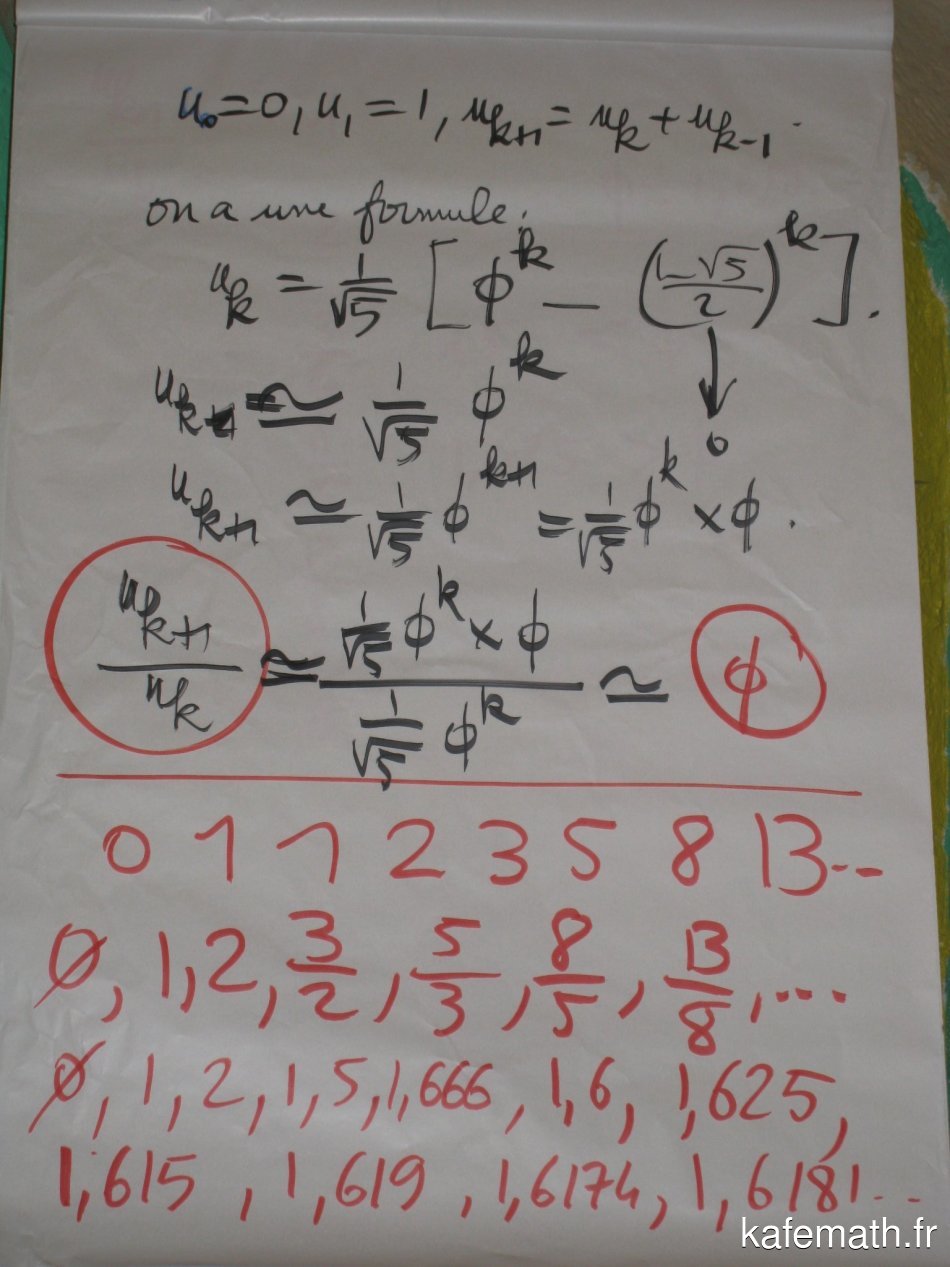 u₀ = 0, u₁ = 1, u_{k+1} = u_k + u_{k-1}.
on a une formule:
u_k = 1/√5 [ϕ^k – ((1-√5)/2)^k].
u_k ≃ 1/√5 ϕ^k ↓ 0
u_{k+1} ≃ 1/√5 ϕ^{k+1} = 1/√5 ϕ^k × ϕ.
u_{k+1}/u_k ≃ (1/√5 ϕ^k × ϕ)/(1/√5 ϕ^k) ≃ ϕ
0 1 1 2 3 5 8 13...
0, 1, 2, 3/2, 5/3, 8/5, 13/8, ...
0, 1, 2, 1,5, 1,666, 1,6, 1,625,
1,615, 1,619, 1,6174, 1,6181...
kafemath.fr